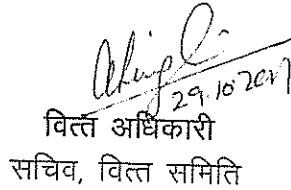 29.10.2017
वित्त अधिकारी
सचिव, वित्त समिति